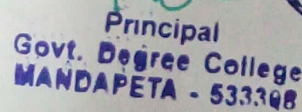 Principal
Govt. Degree College
MANDAPETA - 533308